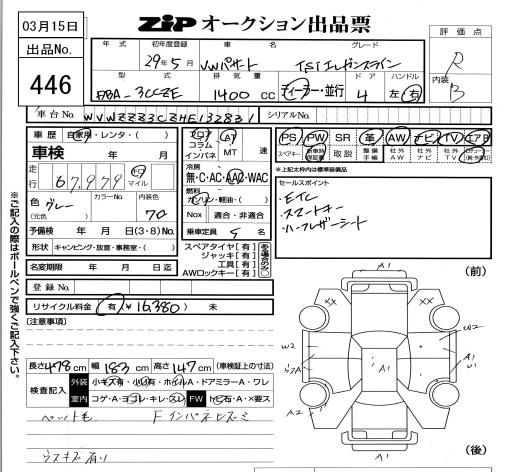 03月15日
ZiPオークション出品票
出品No.
446
評価点
R
内装
B
年式 初年度登録 車名 グレード
29年5月 VWパサート TSIエレガンスライン
型式 排気量 ドア ハンドル
DBA-3CCZE 1400cc ディーラー・並行 4 左・右
車台No. WVWZZZ3CZHE132831 シリアルNo.
車歴 自家用・レンタ・( )
車検 年 月
走行 67,979 km マイル
色 グレー
(元色)
カラーNo.
内装色
70
予備検 年 月 日(3・8)No.
形状 キャンピング・放室・事務室・( )
名変期限 年 月 日迄
登録No.
リサイクル料金 (有)(¥16,380) 未
フロア
コラム
インパネ
AT
MT
速
冷房
無・C・AC・AAC・WAC
燃料
ガソリン・軽油・( )
Nox 適合・非適合
乗車定員 5 名
スペアタイヤ[有]
ジャッキ[有]
工具[有]
AWロックキー[有]
PS PW SR 革 AW ナビ TV
スペアキー 新車時保証書 取説 整備手帳 社外AW 社外ナビ 社外TV
※上記太枠内は標準装備品
セールスポイント
・ETC
・スマートキー
・ハーフレザーシート
※ご記入の際はボールペンで強くご記入下さい。
(注意事項)
長さ478cm 幅183cm 高さ147cm (車検証上の寸法)
検査記入 外装 小キズ有・小凹有・ホイルA・ドアミラーA・ワレ
室内 コゲ・A・ヨゴレ・キレ・スレ FW トビ石・A・×要ス
ペット毛 Fインパネヒズミ
ウスキズ有り
(前)
A1
XX
XX
W2
W2
A1
A1
A2
A1
(後)